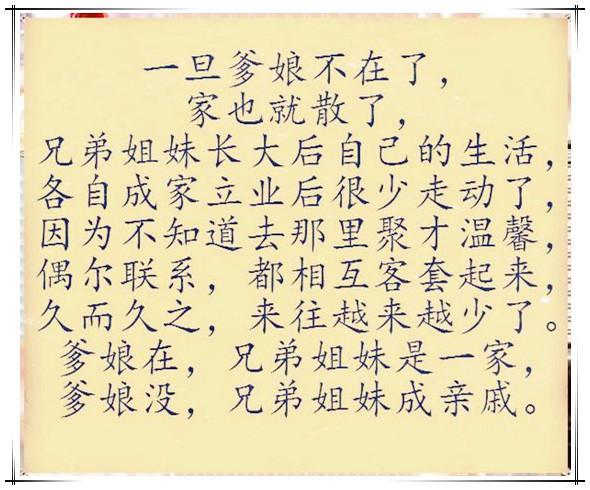 一旦爹娘不在了，
家也就散了，
兄弟姐妹长大后自己的生活，
各自成家立业后很少走动了，
因为不知道去那里聚才温馨，
偶尔联系，都相互客套起来，
久而久之，来往越来越少了。
爹娘在，兄弟姐妹是一家，
爹娘没，兄弟姐妹成亲戚。